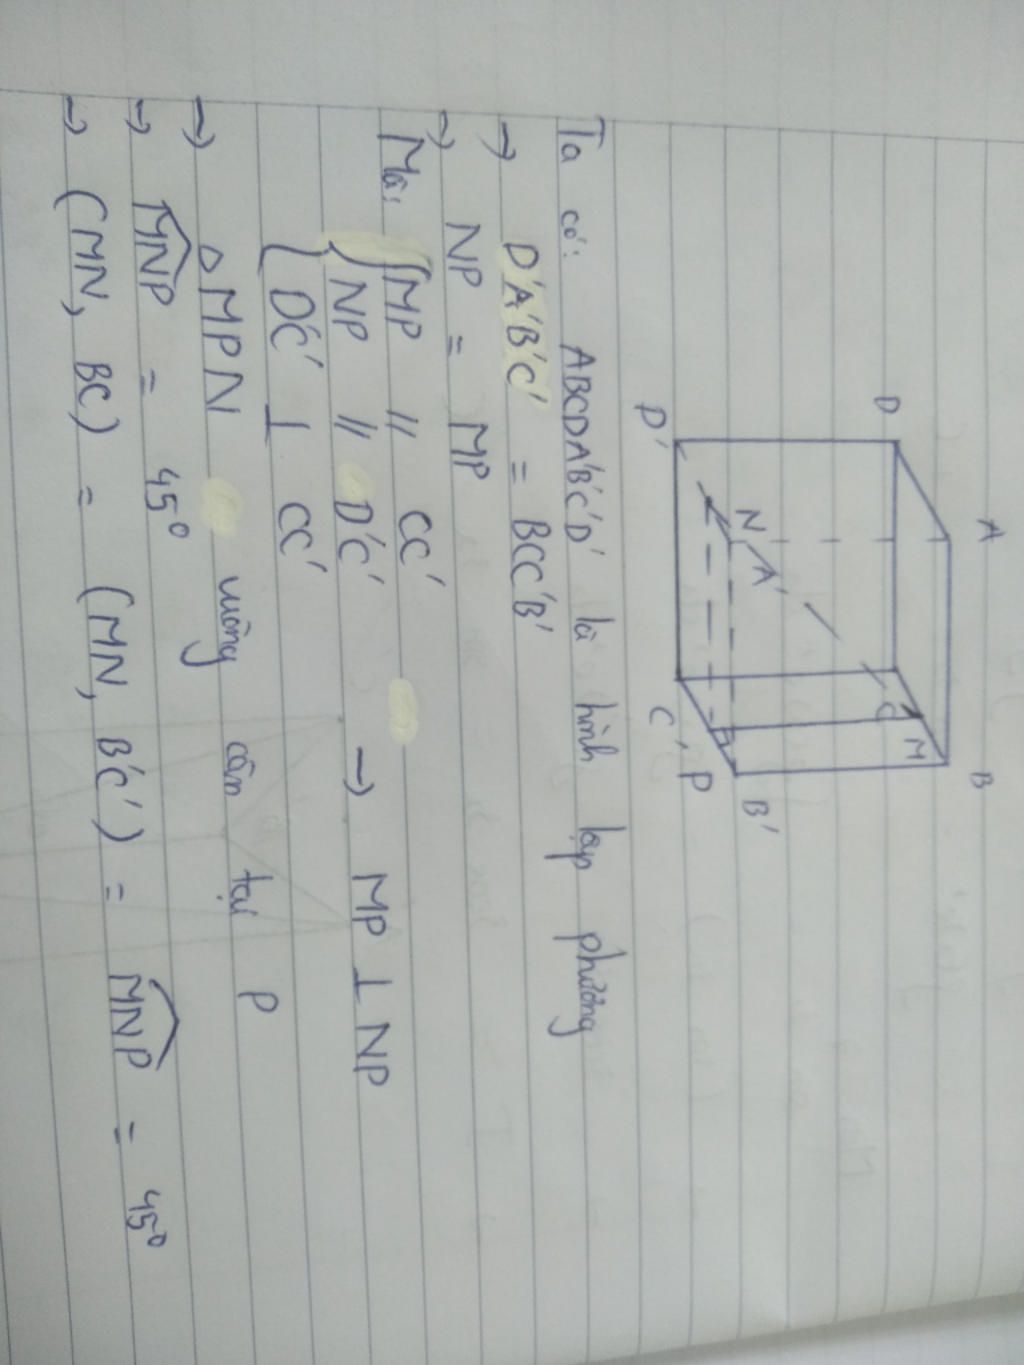 A
B
D
C
M
N
A'
D'
C'
P
B'
Ta có: ABCDA'B'C'D' là hình lập phương
→ D'A'B'C' = BCC'B'
→ NP = MP
Mà: { MP // CC'
NP // D'C' → MP ⊥ NP
D'C' ⊥ CC'
→ △MPN vuông cân tại P
→ \widehat{MNP} = 45°
→ (MN, BC) = (MN, B'C') = \widehat{MNP} = 45°